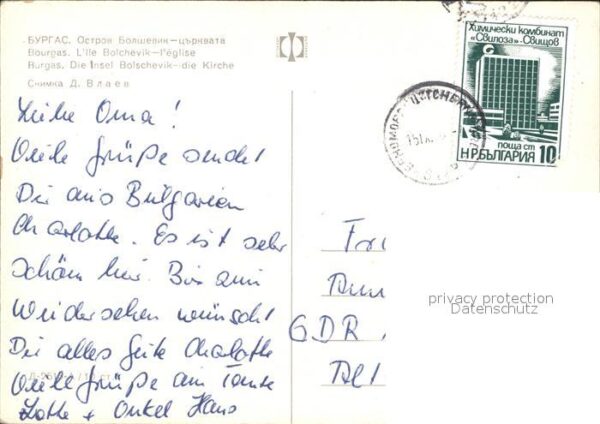 БУРГАС. Остров Болшевик—църквата
Bourgas. L'île Bolchevik—l'église
Burgas. Die Insel Bolschevik—die Kirche
Снимка Д. Влаев
Химически комбинат
"Свилоза"-Свищов
поща ст
НР БЪЛГАРИЯ 10
Liebe Oma!
Viele Grüße sendet
Dir aus Bulgarien
Charlotte. Es ist sehr
schön hier. Bis zum
Wiedersehen wünscht
Dir alles Gute Charlotte
Viele Grüße an Tante
Lotte + Onkel Hans
GDR
privacy protection
Datenschutz